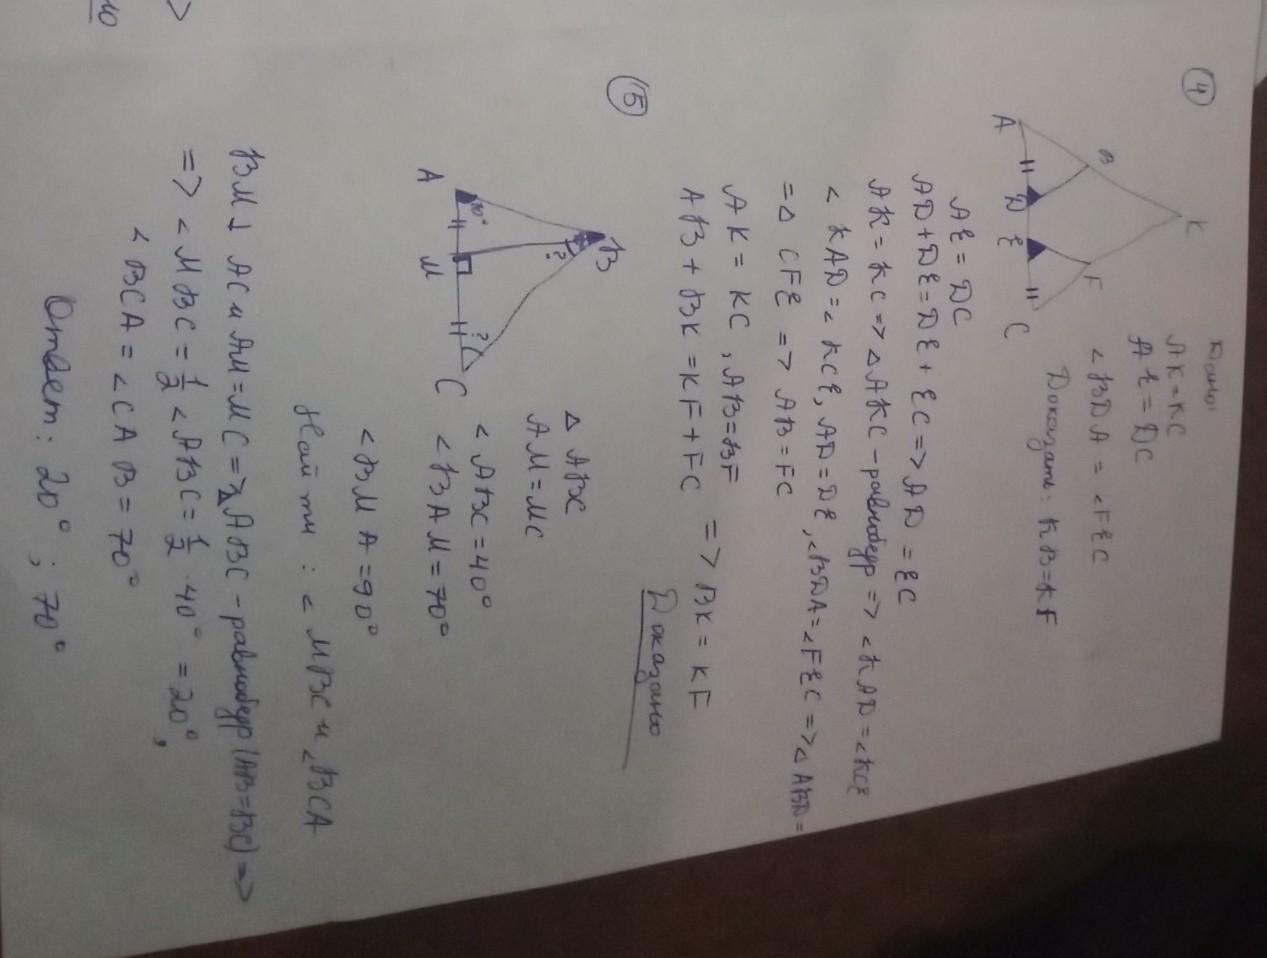 ④
A B K D E F C
Дано:
AK = KC
AE = DC
<BDA = <FEC
Доказать: KB = KF
AE = DC
AD + DE = DE + EC => AD = EC
AK = KC => △ AKC - равнобедр => < KAD = < KCE
< KAD = < KCE, AD = DE, <BDA = <FEC => △ ABD =
= △ CFE => AB = FC
AK = KC, AB = BF
AB + BK = KF + FC => BK = KF
Доказано
⑤
A B M C 70° ? ?
△ ABC
AM = MC
< ABC = 40°
< BAM = 70°
< BMA = 90°
Найти: < MBC и <BCA
BM ⊥ AC и AM = MC => △ABC - равнобедр (AB = BC) =>
=> < MBC = 1/2 < ABC = 1/2 · 40° = 20°,
< BCA = < CAB = 70°
Ответ: 20°; 70°